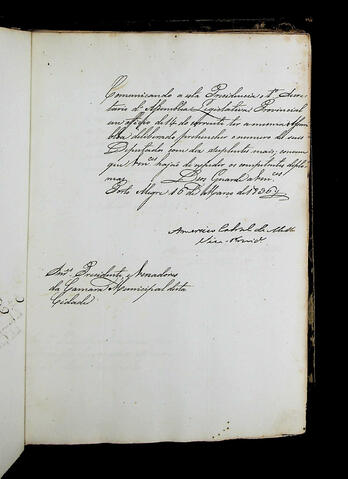 Comunicando a esta Presidencia o 1º Secre-
tario d'Assemblea Legislativa Provincial
em officio de 14 do corrente ter a mesma Assem-
blea deliberado prehencher o numero de seus
Deputados com da suplentes mais, convem
que Vmces hajão de expedir os competentes diplo-
mas. Deos Guarde a Vmces
Porto Alegre 15 de Março de 1836
Americo Cabral de Mello
Vice-
Snrs Presidente, e Vereadores
da Camara Municipal desta
Cidade